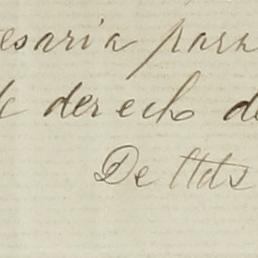 esaria para
de derecho de
De Uds